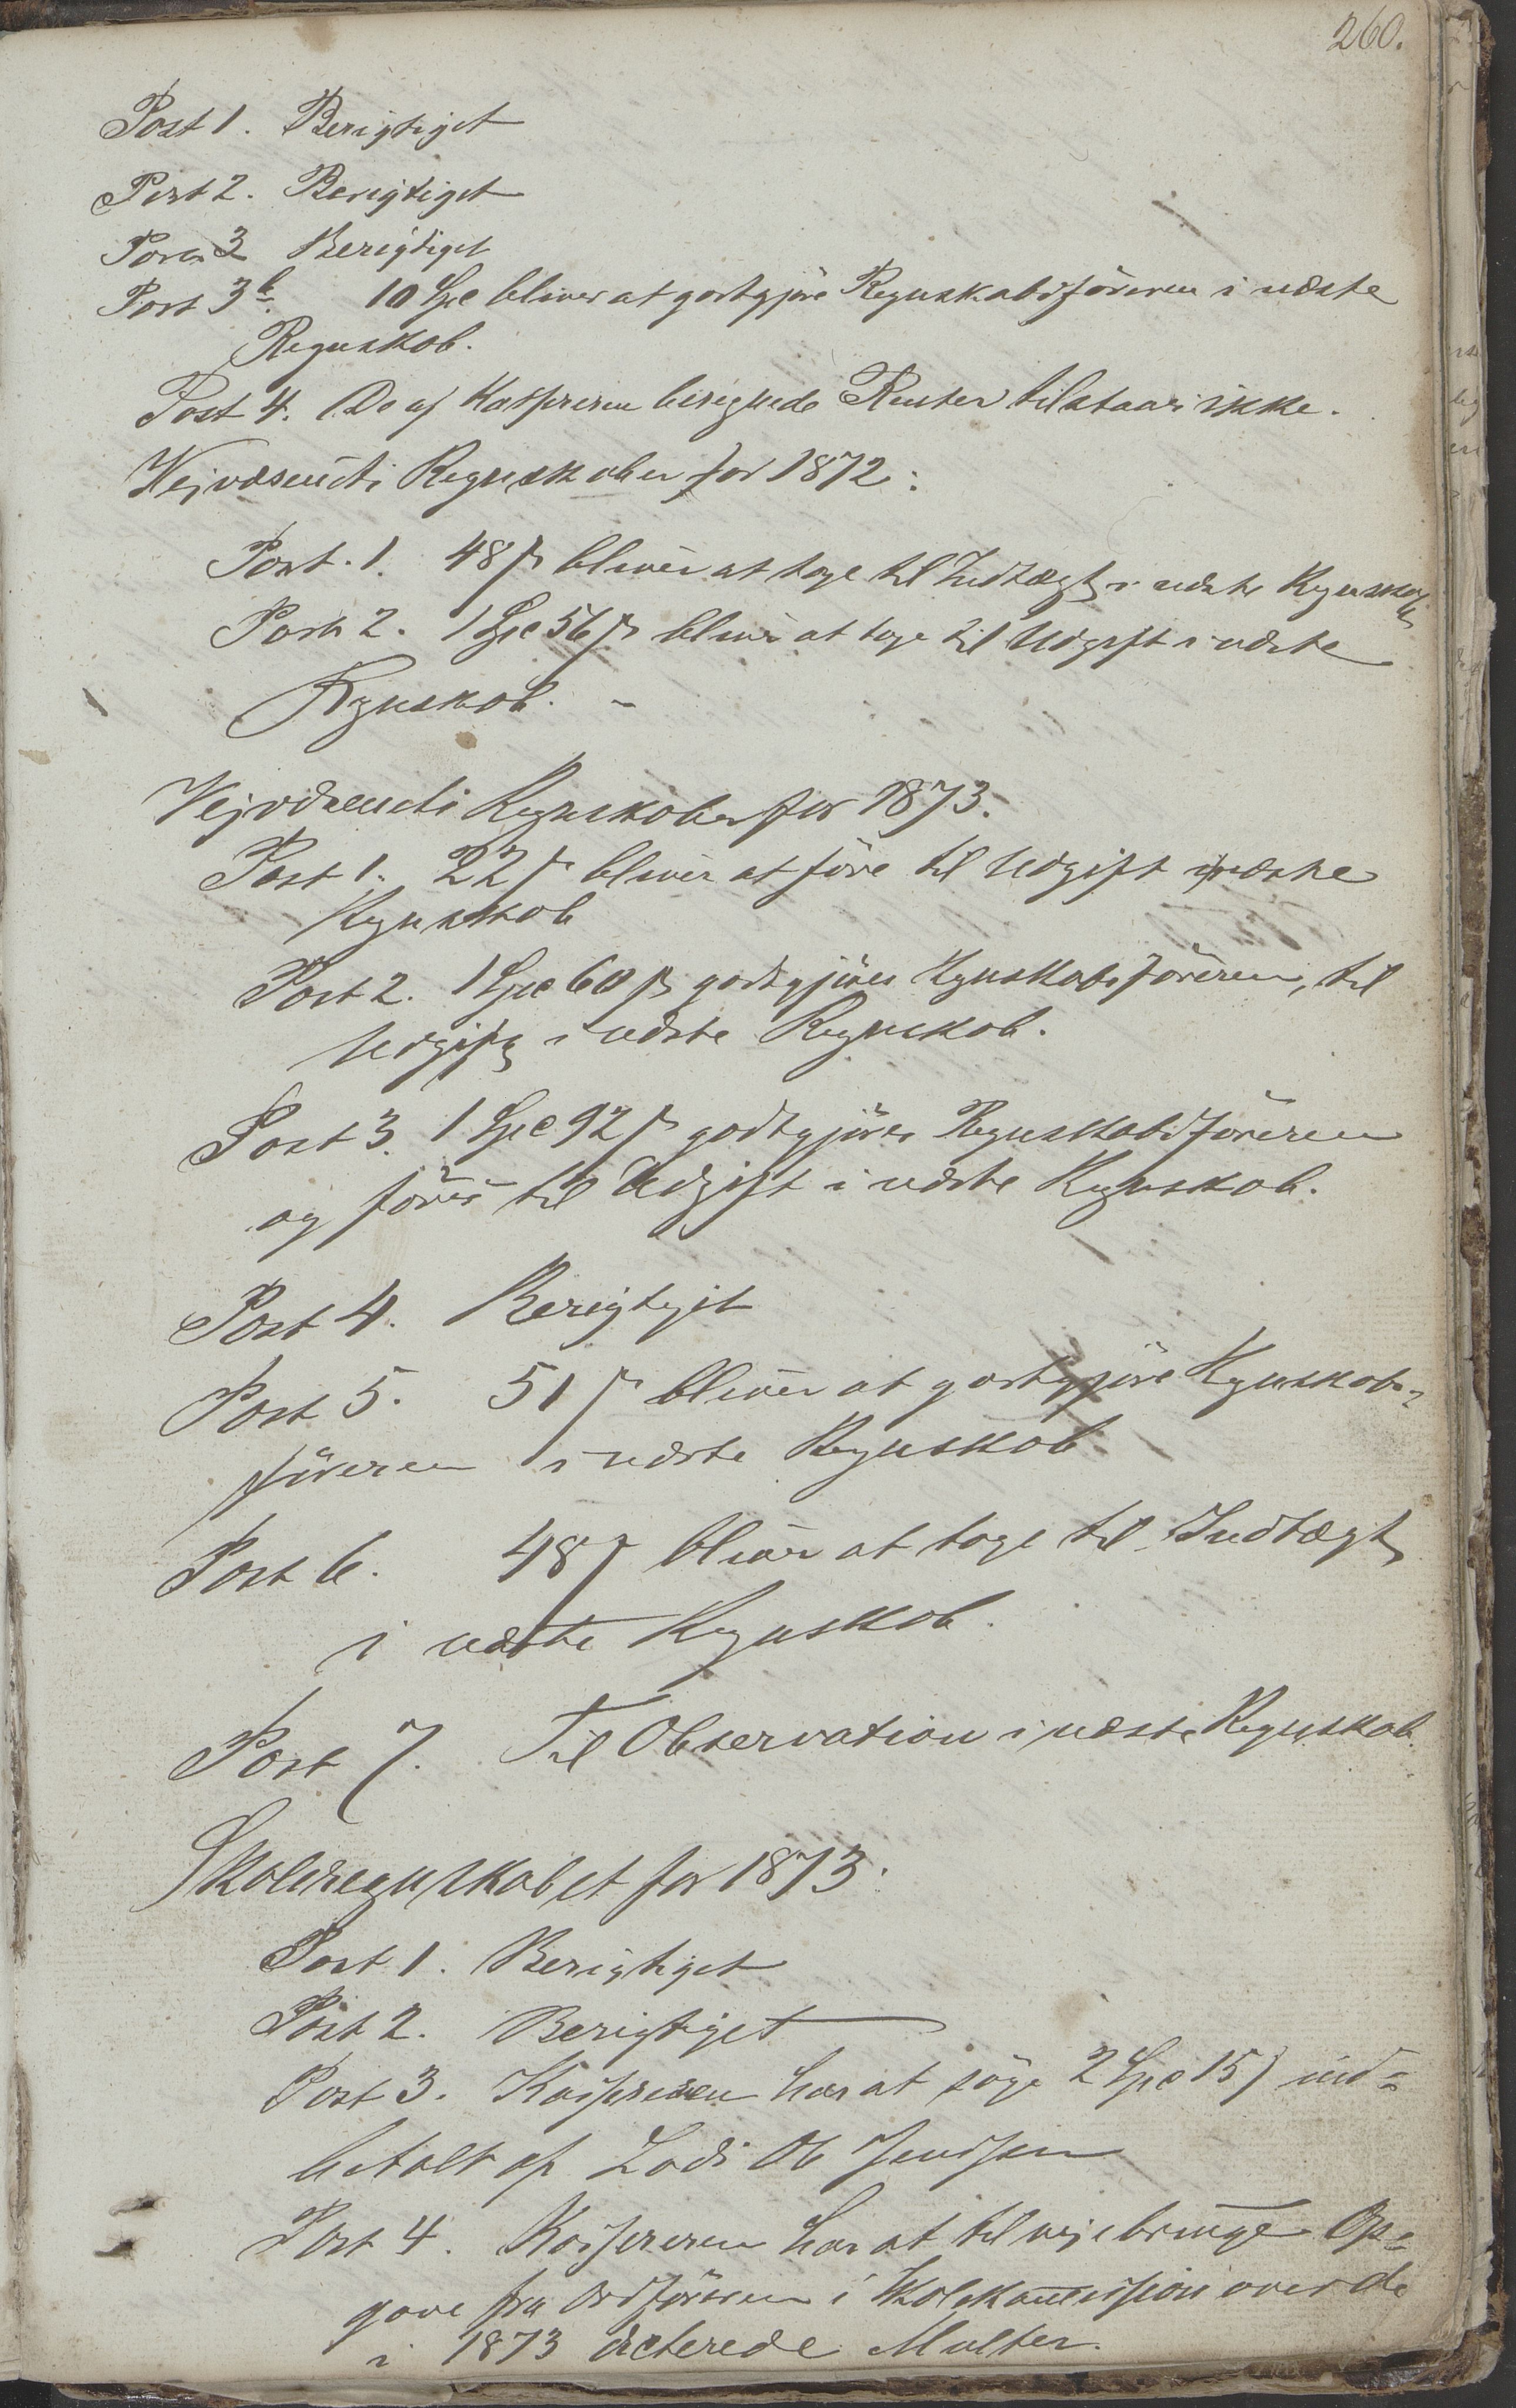 260.
Post 1. Berigtiget
Post 2. Berigtiget
Post 3 Berigtiget
Post 3b. 10 Spe bliver at godtgjöre Regnskabsföreren i næste
Regnskab.
Post 4. De af Kassereren beregnede Renter tilstaaes ikke.
Vejvæsenets Regnskaber for 1872:
Post. 1. 48 ß bliver at tage til Indtægt i næste Regnskab
Post 2. 1 Spe 56 ß bliver at tage til Udgift i næste
Regnskab. -
Vejvæsenets Regnskaber for 1873.
Post 1. 22 ß bliver at före til Udgift i næste
Regnskab
Post 2. 1 Spe 60 ß godtgjöres Regnskabsföreren, til
Udgift i næste Regnskab.
Post 3. 1 Spe 92 ß godtgjöres Regnskabsföreren
og föres til Udgift i næste Regnskab.
Post 4. Berigtiget
Post 5. 51 ß bliver at godtgjöre Regnskabs-
föreren i næste Regnskab
Post 6. 48 ß bliver at tage til Indtægt
i næste Regnskab.
Post 7. Til Observation i næste Regnskab.
Skoleregnskabet for 1873.
Post 1. Berigtiget
Post 2. Berigtiget
Post 3. Kassereren har at söge 2 Spe 15 ß ind-
betalt af Lods Ob Jensen
Post 4. Kassereren har at tilvejebringe Op-
gave fra Ordföreren i Skolekommission over de
i 1873 dicterede Multer.